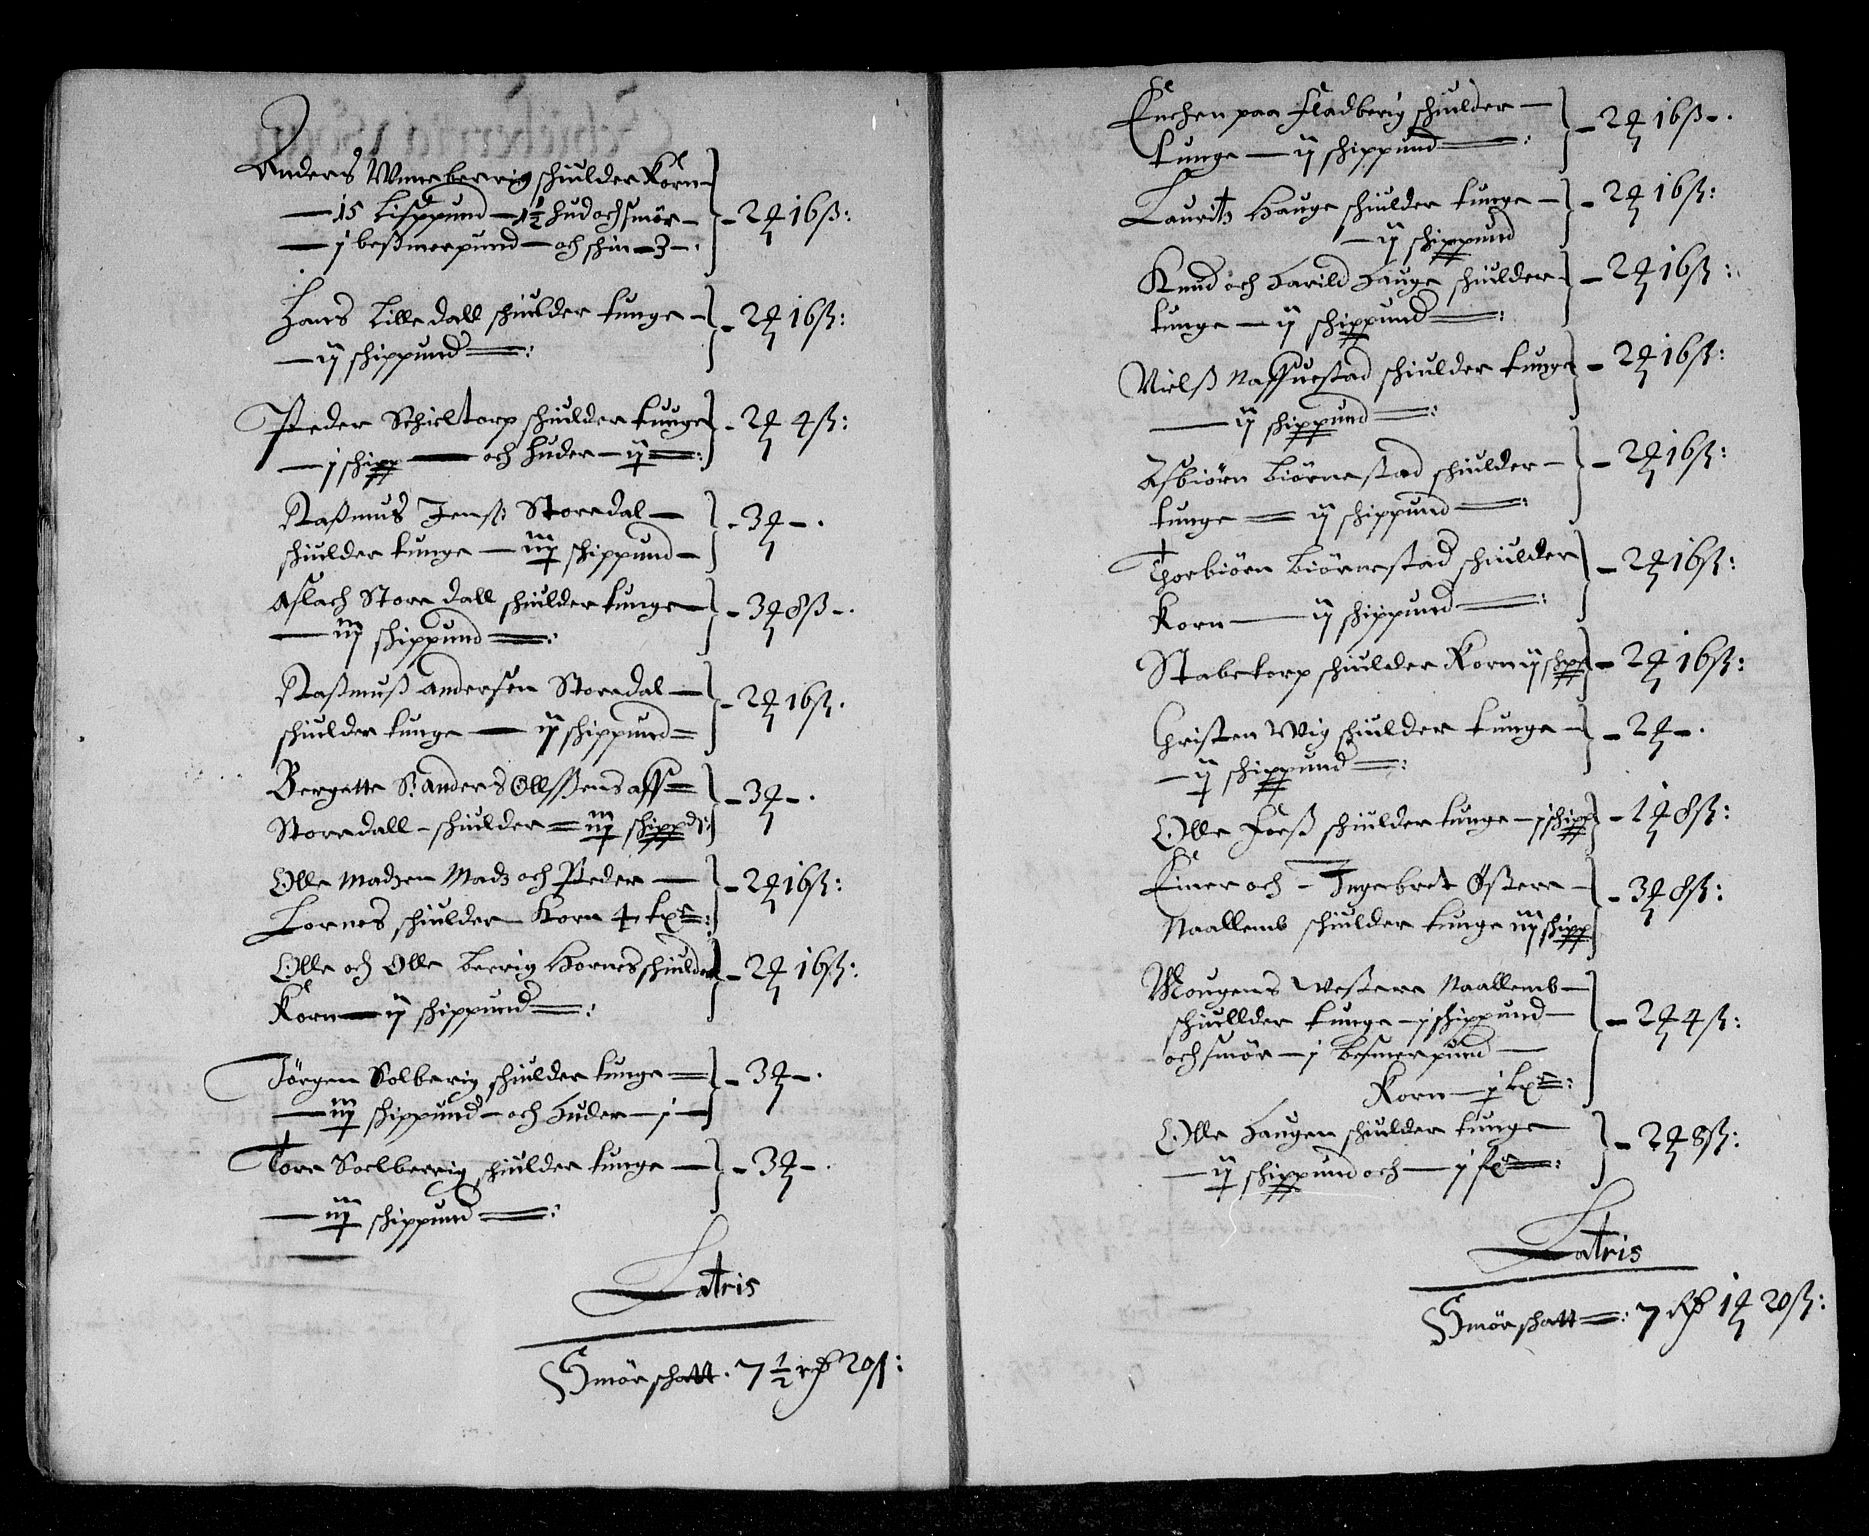 Anders Winneberrig schiulder Korn
— 15 Lispund — 1½ hud och smör —
— j beszmerpund — och skin — 3 — : } — 2 ƶ 16 ß :
Hans Lilledall schiulder tunge —
— ij schippund — : } — 2 ƶ 16 ß :
Peder Schieltorp schiulder tunge
— j schipp — och huder — ij — : } — 2 ƶ 4 ß :
Raszmus Jenß Storedal —
schiulder tunge — iij schippund — } — 3 ƶ — .
Aslach Storedall schiulder tunge —
— iij schippund — : } — 3 ƶ 8 ß — .
Raszmusz Andersen Storedal —
schiulder tunge — ij schippund — } — 2 ƶ 16 ß .
Bergette S: Anders Ollszens aff —
Storedall — schiulder — iij schippd: } — 3 ƶ — .
Olle Madzen Madz och Peder —
Lornes schiulder — Korn 4 — : } — 2 ƶ 16 ß :
Olle och Olle Berrig Hornes schiulder
Korn — ij schippund — : } — 2 ƶ 16 ß :
Jörgen Solberig schiulder tunge —
— iij schippund — och huder — j — } — 3 ƶ — .
Tore Soelberrig schiulder tunge —
— iij schippund — : } — 3 ƶ — .
Latris
Smörschatt . 7 ½ rd 20 ß :
Enchen paa Fladberig schiulder —
tunge — ij schippund — : } — 2 ƶ 16 ß — .
Lauritz Hauge schiulder tunge —
— ij schippund } — 2 ƶ 16 ß :
Knud och Harild Hauge schiulder —
tunge — ij schippund — : } — 2 ƶ 16 ß :
Nielsz Naffuestad schiulder tunge
— ij schippund — : } — 2 ƶ 16 ß :
Asbiörn Biörnestad schiulder —
tunge — ij schippund — : } — 2 ƶ 16 ß :
Thorbiörn Biörnestad schiulder
Korn — ij schippund — : } — 2 ƶ 16 ß :
Stabetorp schiulder Korn ij schpp } — 2 ƶ 16 ß :
Christen Wig schiulder tunge —
— ij schippund — : } — 2 ƶ — .
Olle Foesz schiulder tunge — j schipp } — 1 ƶ 8 ß :
Einer och — Ingebret Östere —
Naallemb schiulder tunge iij schipp } — 3 ƶ 8 ß :
Mougens Westere Naallemb —
schiullder tunge — j schippund —
och smör — j besmerpund —
Korn — j — : } — 2 ƶ 4 ß :
Olle Haugen schiulder tunge
— ij schippund och — j — : } — 2 ƶ 8 ß :
Latris
Smörschatt — : 7 Rd 1 ƶ 20 ß :